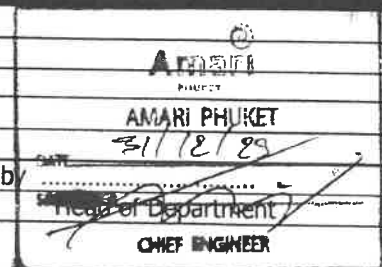 Amari
PHUKET
AMARI PHUKET
DATE 31/12/29
by
Head of Department
CHIEF ENGINEER